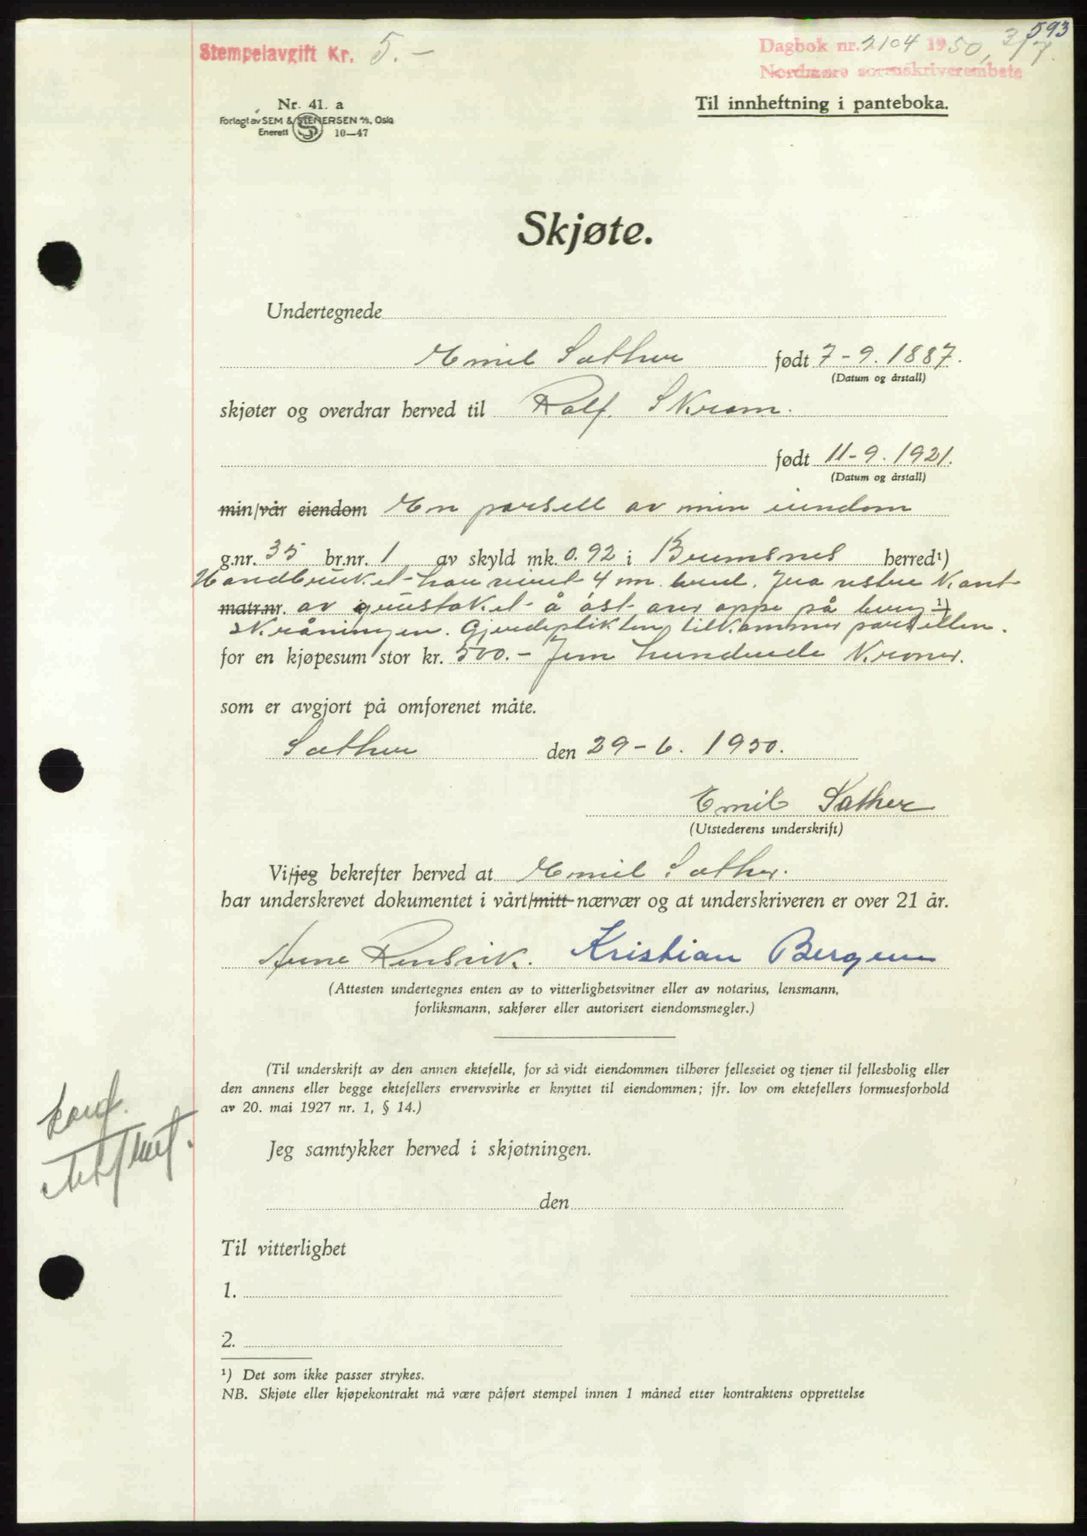 593
Stempelavgift Kr. 5.-
Dagbok nr. 2104 1950, 3/7.
Nordmøre sorenskriverembete
Nr. 41. a
Forlagt av SEM & STENERSEN A/S, Oslo
Enerett 10—47
Til innheftning i panteboka.
Skjøte.
Undertegnede
Emil Sather født 7-9. 1887.
(Datum og årstall)
skjøter og overdrar herved til Rolf. Skram.
født 11-9. 1921.
(Datum og årstall)
min/vår eiendom En parsell av min eiendom
g.nr. 35 br.nr. 1 av skyld mk. 0.92 i Bremsnes herred¹)
4 m. kant
matr.nr. av å øst over oppe på berg ¹)
skråningen. Gjerdeplikten tilkommer parsellen.
for en kjøpesum stor kr. 500.- Fem hundrede Kroner.
som er avgjort på omforenet måte.
Sather den 29-6. 1950.
Emil Sather
(Utstederens underskrift)
Vi/jeg bekrefter herved at Emil Sather.
har underskrevet dokumentet i vårt/mitt nærvær og at underskriveren er over 21 år.
Anne Rensvik. Kristian Bergem
(Attesten undertegnes enten av to vitterlighetsvitner eller av notarius, lensmann,
forliksmann, sakfører eller autorisert eiendomsmegler.)
(Til underskrift av den annen ektefelle, for så vidt eiendommen tilhører felleseiet og tjener til fellesbolig eller
den annens eller begge ektefellers ervervsvirke er knyttet til eiendommen; jfr. lov om ektefellers formuesforhold
av 20. mai 1927 nr. 1, § 14.)
Jeg samtykker herved i skjøtningen.
den
Til vitterlighet
1.
2.
¹) Det som ikke passer strykes.
NB. Skjøte eller kjøpekontrakt må være påført stempel innen 1 måned etter kontraktens opprettelse